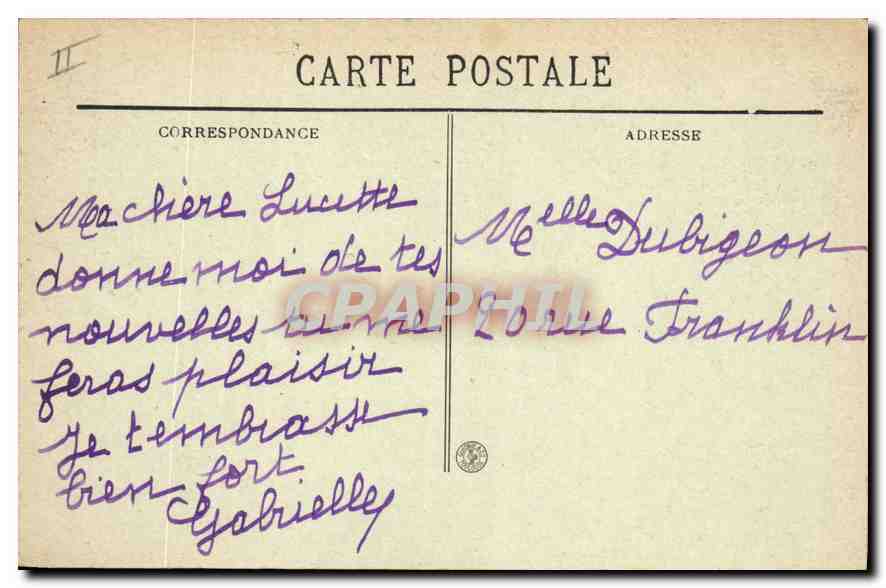 II
CARTE POSTALE
CORRESPONDANCE
ADRESSE
Ma chère Lucette
donne moi de tes
nouvelles tu me
feras plaisir
Je t'embrasse
bien fort
Gabrielle
Melle Dubigeon
20 rue Franklin
CPAPHIL